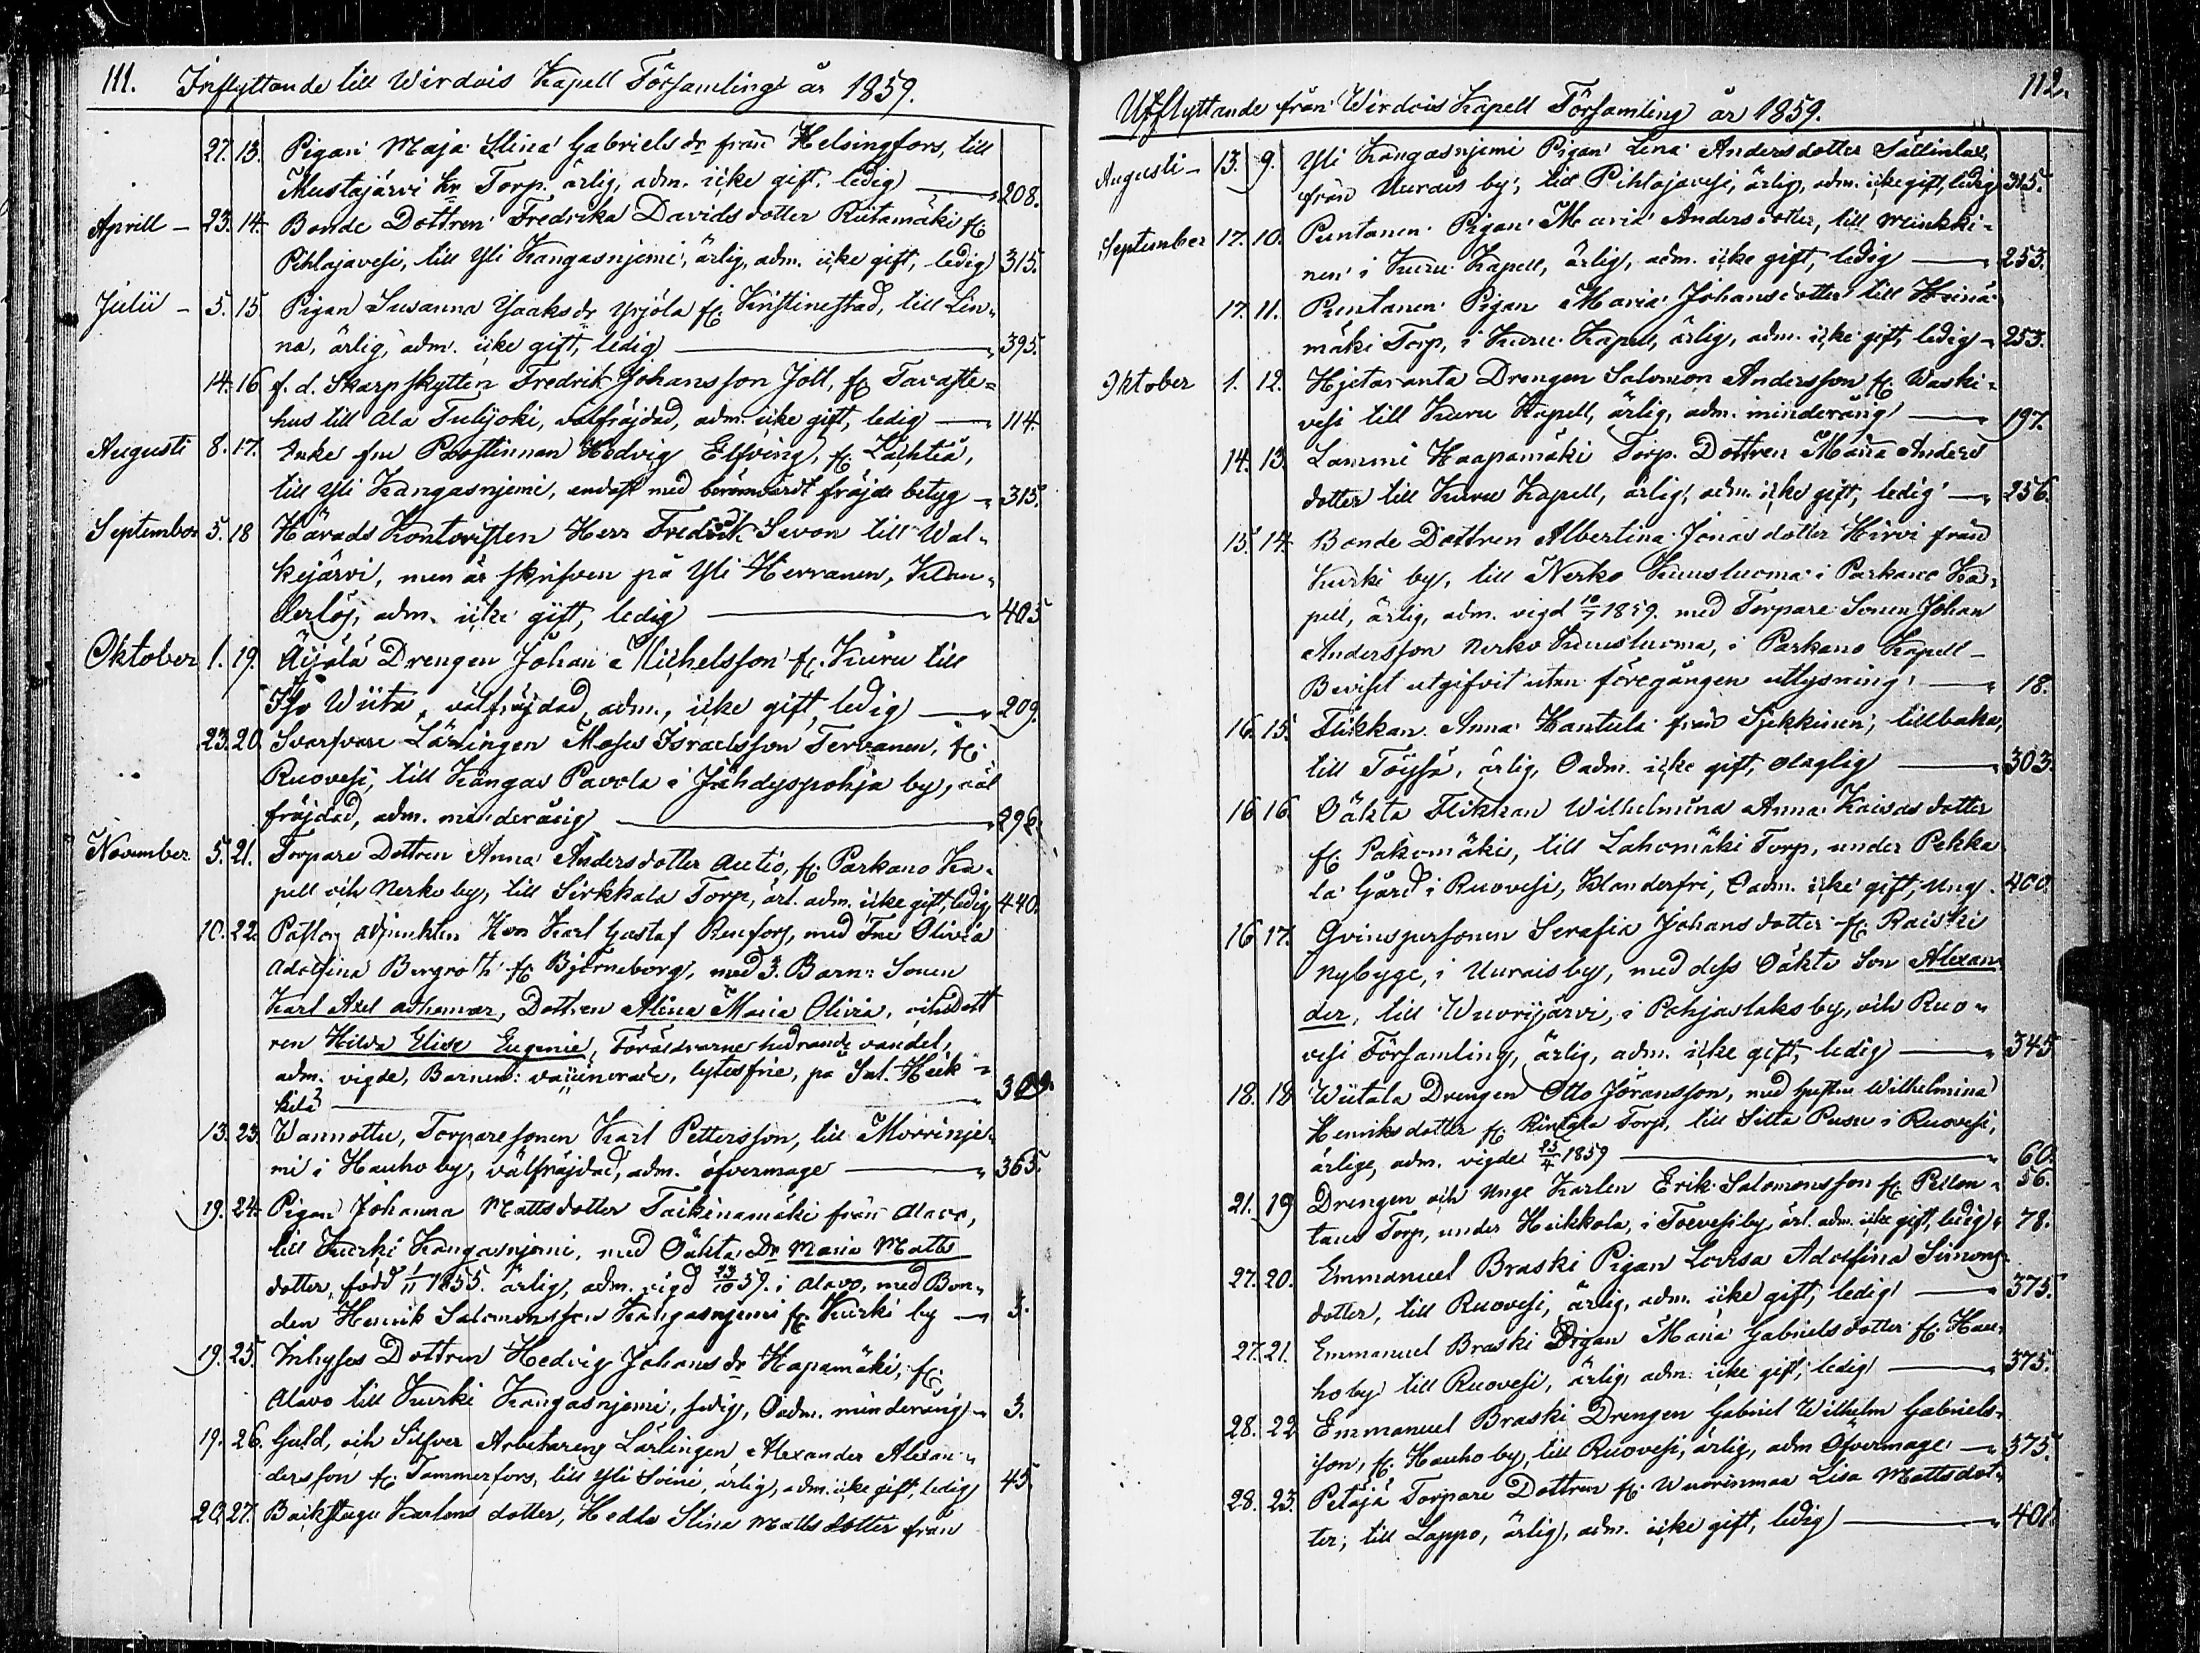 111. Inflyttande till Wirdois Kapell Församling år 1859.
27. 13. Pigan Maja Stina Gabriels dr från Helsingfors, till
Mustajärvi Kr Torp. ärlig, adm. icke gift, ledig 208.
Aprill - 23. 14. Bonde Dottren Fredrika Davidsdotter Riitamäki fr.
Pihlajavesi, till Yli Kangasnjemi, ärlig, adm. icke gift, ledig 315.
Julii - 5. 15. Pigan Susanna Isaks dr Yrjölä fr. Kristinestad, till Lin-
na, ärlig, adm. icke gift, ledig 395.
14. 16 f. d. Skarpskytten Fredrik Johansson Joll, fr. Tavaste-
hus till Ala Tulijoki, välfräjdad, adm. icke gift, ledig 114.
Augusti 8. 17. Enke fru Prostinnan Hedvig Elfving, fr. Lächtiä,
till Yli Kangasnjemi, endast med berömvärdt fräjde betyg 315.
September 5. 18 Härads Kontoristen Herr Fredrik Sevon till Wal-
kejärvi, men är skrifven på Yli Herranen, Klan-
derlös, adm. icke gift, ledig 405
Oktober 1. 19. Äijälä Drengen Johan Michelsson fr. Kuru till
Iso Wiita, välfräjdad, adm., icke gift, ledig 209.
23. 20 Svarfvare Lärlingen Moses Israelsson Tervanen, fr.
Ruovesi, till Kangas Pavola i Jähdyspohja by, väl
fräjdad, adm. minderårig 296.
November 5. 21. Torpare Dottren Anna Andersdotter Autio, fr. Parkano Ka-
pell och Nerko by, till Sirkkala Torp, ärl. adm. icke gift, ledig 440.
10. 22. Pastors adjunkten Herr Karl Gustaf Renfors, med Fru Olivia
Adolfina Bergroth fr. Björneborg, med 3. Barn: Sonen
Karl Axel Athanar, Dottren Alina Maria Olivia, och Dott
ren Hilda Elise Eugenie, Föräldrarne hedrande vandel,
adm. vigde, Barnen: vaccinerade, lytesfrie, på Sal. Heik-
kilä 309.
13. 23. Wannottu, Torparesonen Karl Pettersson, till Morrinje-
mi i Hauho by, välfräjdad, adm. öfvermage 365.
19. 24. Pigan Johanna Mattsdotter Taikinamäki från Alavo,
till Kurki Kangasnjemi, med Oäkta Dr Maria Matts
dotter, född 1/11 1855. ärlig, adm. vigd 23/10 59. i Alavo, med Bon-
den Henrik Salomonsson Kangasnjemi fr. Kurki by 3.
19. 25. Inhyses Dottren Hedvig Johans dr Hapamäki, fr.
Alavo till Kurki Kangasnjemi, sedig, Oadm. minderårig 3.
19. 26. Guld, och Silfver Arbetarens Lärlingen Alexander Alexan-
dersson fr. Tammerfors, till Yli Soini, ärlig, adm. icke gift, ledig 45.
20. 27. Backstugu Karlens dotter, Hedla Stina Mattsdotter från
112.
Utflyttande från Wirdois Kapell Församling år 1859.
Augusti - 13. 9. Yli Kangasnjemi Pigan Lena Andersdotter Sällinlax
från Uurais by, till Pihlajavesi, ärlig, adm. icke gift, ledig 315.
September 17. 10. Puntanen Pigan Maria Andersdotter, till Minkki-
nen i Kuru Kapell, ärlig, adm. icke gift, ledig 253.
17. 11. Puntanen Pigan Maria Johansdotter till Heinä-
mäki Torp, i Kuru Kapell, ärlig, adm. icke gift, ledig 253.
Oktober 1. 12. Hjetaranta Drengen Salomon Andersson fr. Waski-
vesi till Kuru Kapell, ärlig, adm. minderårig 197.
14. 13. Lammi Haapamäki Torp. Dottren Maria Anders
dotter till Kuru Kapell, ärlig, adm. icke gift, ledig 256.
15. 14. Bonde Dottren Albertina Jonasdotter Hirvi från
Kurki by, till Nerko Kuusluoma i Parkano Ka-
pell, ärlig, adm. vigd 10/7 1859. med Torpare Sonen Johan
Andersson Nerko Kuusluoma, i Parkano Kapell -
Beviset utgifvit utan föregången utlysning. 18.
16. 15. Flikkan Anna Hantula från Sjekkinen, tillbaka,
till Töysä, ärlig, Oadm. icke gift, olaglig 303.
16 16. Oäkta Flikkan Wilhelmina Anna Kaisas dotter
fr. Pakomäki, till Lahomäki Torp, under Pekka
la Gård i Ruovesi, Klanderfri, Oadm. icke gift, ung 400.
16 17. Qvinspersonen Serafia Johansdotter fr. Raiski
Nybygge, i Uurais by, med dess Oäkta Son Alexan
der, till Wuorijärvi, i Pohjaslaks by, och Ruo-
vesi Församling, ärlig, adm. icke gift, ledig 345
18. 18 Wiitala Drengen Otto Jöransson, med hustru Wilhelmina
Henriksdotter fr. Rintala Torp, till Silla Pusu i Ruovesi,
ärlige, adm. vigde 25/4 1859 60.
21. 19 Drengen och Unge Karlen Erik Salomonsson fr. Pellon- 56.
taus Torp, under Heikkola, i Toivesi by, ärl. adm. icke gift, ledig 78.
27. 20. Emmanuel Braski Pigan Lovisa Adolfina Simons
dotter, till Ruovesi, ärlig, adm. icke gift, ledig 375.
27. 21. Emmanuel Braski Pigan Maria Gabrielsdotter fr. Hau-
ho by till Ruovesi, ärlig, adm. icke gift, ledig 375.
28. 22 Emmanuel Braski Drengen Gabriel Wilhelm Gabriels-
son, fr. Hauho by, till Ruovesi, ärlig, adm Öfvermage 375.
28. 23. Petäjä Torpare Dottren fr. Wuorinmaa Lisa Mattsdot-
ter, till Lappo, ärlig, adm. icke gift, ledig 401.